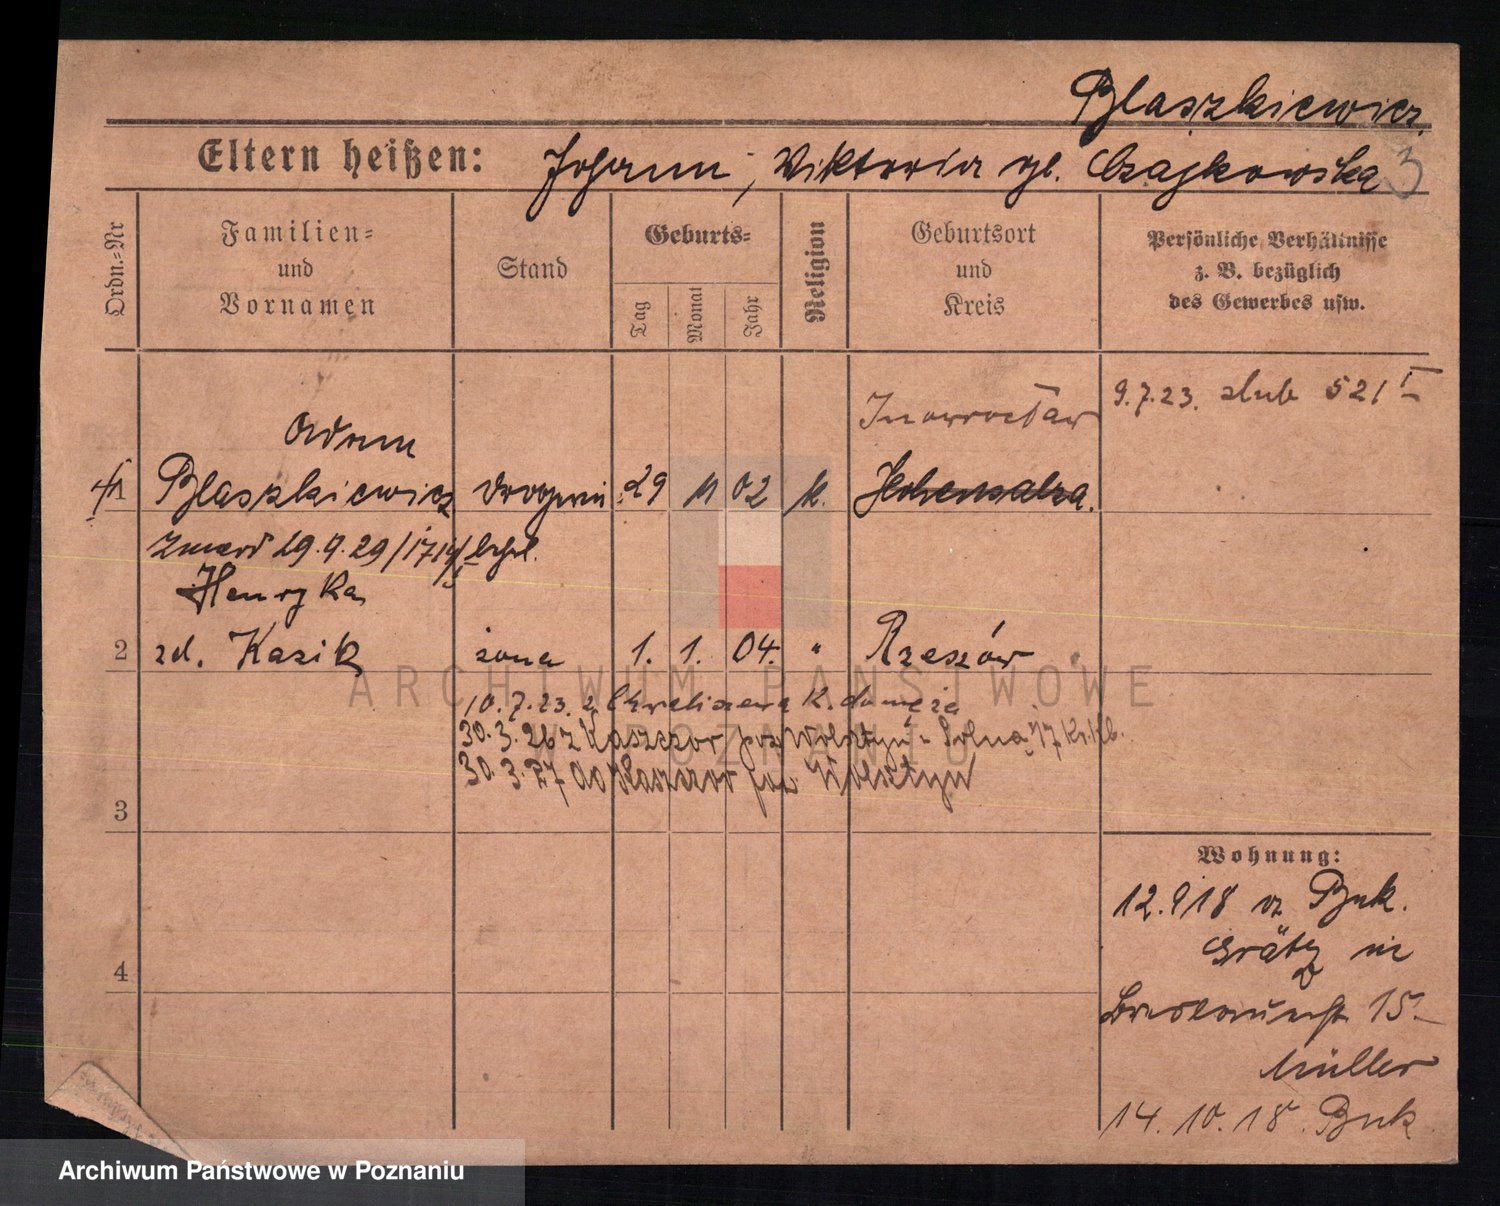 Blaszkiewicz
Eltern heißen: Johann, Viktoria gb. Czajkowska 3
Ordn.-Nr
Familien-
und
Vornamen
Stand
Geburts-
Tag
Monat
Jahr
Religion
Geburtsort
und
Kreis
Persönliche Verhältnisse
z. B. bezüglich
des Gewerbes usw.
9.7.23. slub 521 I
Inowrocław
Adam
1 Blaszkiewicz 29 11 02 k. Hohensalza.
zmarł 29.9.29/
Henryka
2 zd. Kasik żona 1. 1. 04. " Rzeszów
10.7.23. z K. do męża
30.3.26 z Kaszczor pow Wolsztyn - Polna 17
30.3.27 do Kaszczor pow Wolsztyn
3
4
Wohnung:
12.9 18 v. Buk.
Grätz in
15.-
Müller
14.10.18. Buk
ARCHIWUM PAŃSTWOWE
W POZNANIU
Archiwum Państwowe w Poznaniu